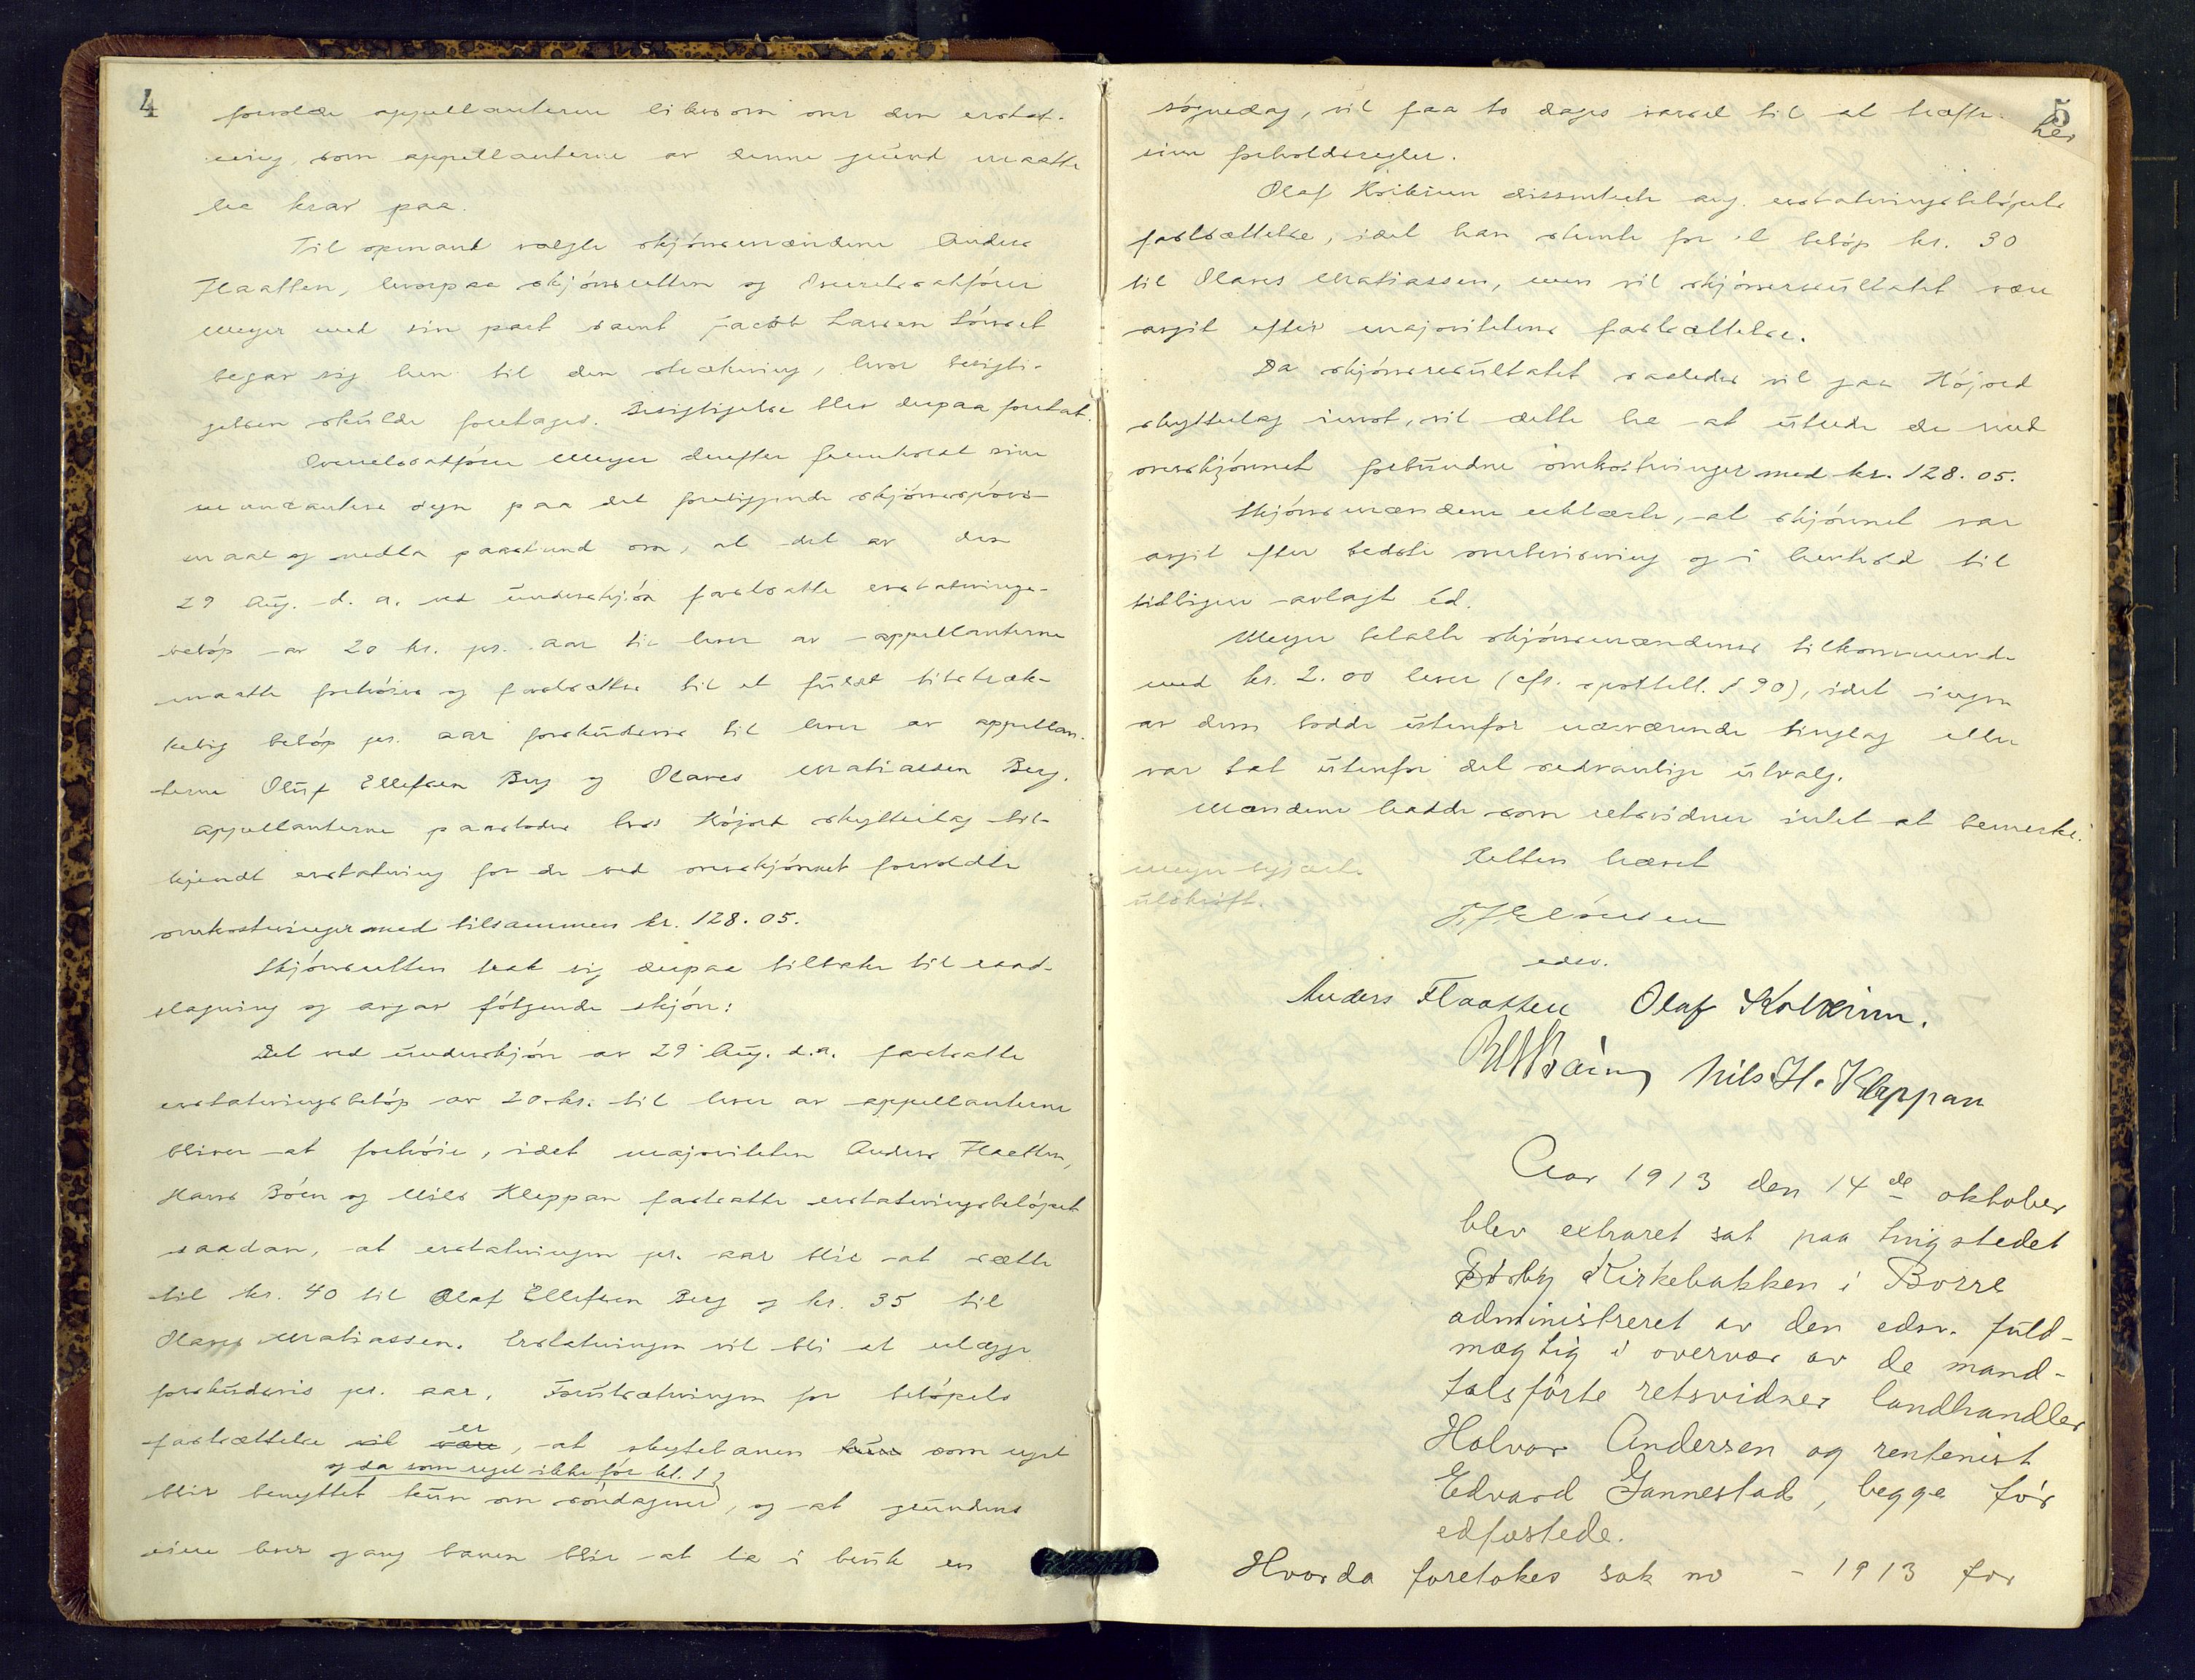 4
forvoldes appellanterne likesom om den erstat-
ning, som appellanterne av denne grund maatte
ha krav paa.
Til opmand valgte skjønsmændene Anders
Flaatten, hvorpaa skjønsretten og Overretssakfører
Meyer med sin part samt Jacob Larsen
begav sig hen til den strækning, hvor besigti-
gelsen skulde foretages. Besigtigelse blev derpaa foretat.
Overretssakfører Meyer derefter fremholdt sine
mandanters syn paa det foreliggende skjønsspørs-
maal og nedla paastand om, at det av den
29 Aug. d. a. ved underskjøn fastsatte erstatnings-
beløp av 20 kr. pr. aar til hver av appellanterne
maatte forhøies og fastsættes til et fuldt tilstræk-
kelig beløp pr. aar forskudsvis til hver av appellan-
terne Oluf Ellefsen Berg og Olaves Matiassen Berg.
Appellanterne paastodes hos Høijord skytterlag til-
kjendt erstatning for de ved overskjønnet forvoldte
omkostninger med tilsammen kr. 128.05.
Skjønsretten trak sig derpaa tilbake til raad-
slagning og avgav følgende skjøn:
Det ved underskjøn av 29 Aug. d.a. fastsatte
erstatningsbeløp av 20 kr. til hver av appellanterne
bliver at forhøie, idet majoriteten Anders Flaatten,
Hans Bøen og Nils Kleppan fastsatte erstatningsbeløpet
saadan, at erstatningen pr. aar blir at sætte
til kr. 40 til Olaf Ellefsen Berg og kr. 35 til
Olaves Matiassen. Erstatningen vil bli at erlægge
forskudsvis pr. aar. Forutsætningen for beløpets
fastsættelse vil være er, at skytebanen kun som regel
og da som regel ikke før kl. 1
blir benyttet kun om søndagene, og at grundens
eiere hver gang banen blir at ta i bruk en
5
søgnedag, vil faa to dages varsel til at træffe
sine forholdsregler.
Olaf Kolkinn dissenterte ang. erstatningsbeløpets
fastsættelse, idet han stemte for et beløp kr. 30
til Olaves Matiassen, men vil skjønsresultatet være
avgit efter majoritetens fastsættelse.
Da skjønsresultatet saaledes vil gaa Høijord
skytterlag imot, vil dette ha at utrede de med
overskjønnet forbundne omkostninger med kr. 128.05.
Skjønsmændene erklærte, at skjønnet var
avgit efter bedste overbevisning og i henhold til
tidligere avlagt ed.
Meyer betalte skjønsmændenes tilkommende
med kr. 2.00 hver (cfr. sporttell. § 90), idet ingen
av dem bodde utenfor nærværende tinglag eller
var tat utenfor det sedvanlige utvalg.
Mændene hadde som retsvidner intet at bemerke.
Retten hævet
Meyer begjærte
utskrift.
edsv.
Anders Flaatten Olaf Kolkinn.
Nils H. Kleppan
Aar 1913 den 14de oktober
blev extraret sat paa tingstedet
Kirkebakken i Borre
administreret av den edsv. fuld-
mægtig i overvær av de mand-
talsførte retsvidner landhandler
Halvor Andersen og rentenist
Edvard Gannestad, begge før
edfæstede.
Hvorda foretokes sak no - 1913 for